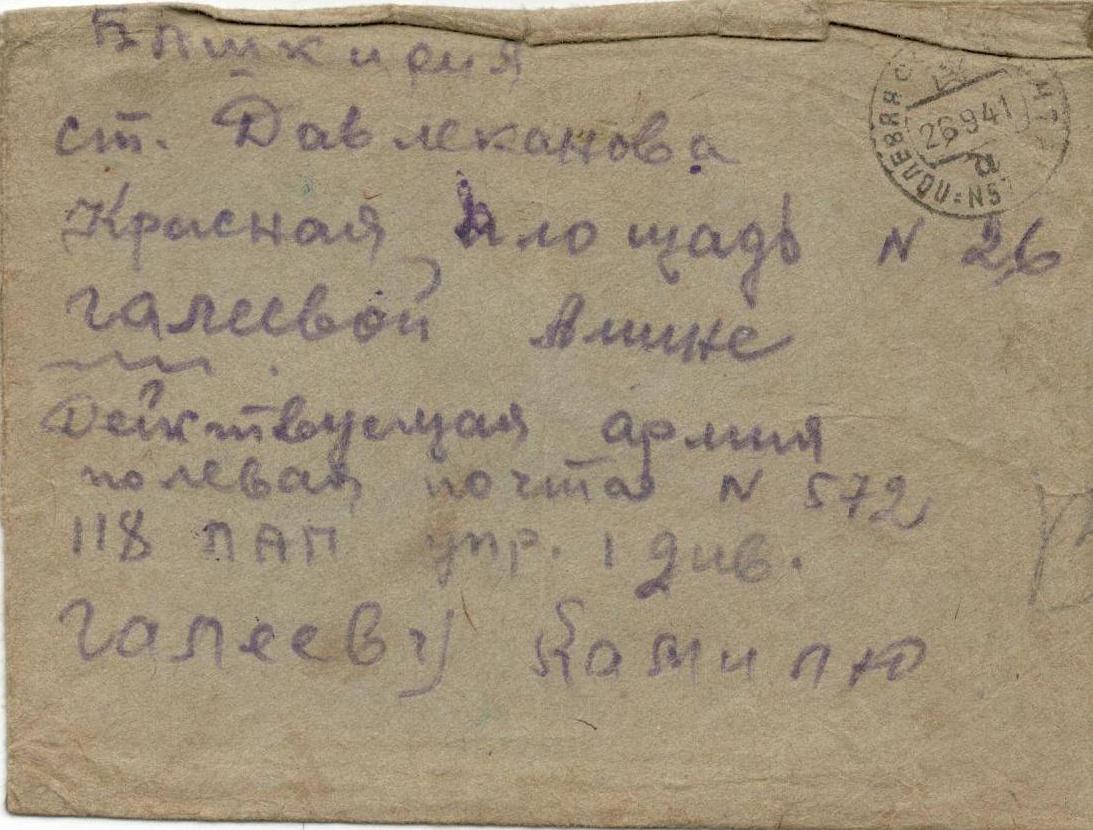 Башкирия
ст. Давлеканова
Красная площадь N 26
Галеевой Амине
Действуещая армия
полевая почта N 572
118 ПАП упр. 1 див.
Галееву Камилю
ПОЛЕВАЯ
26 9 41
а
N57